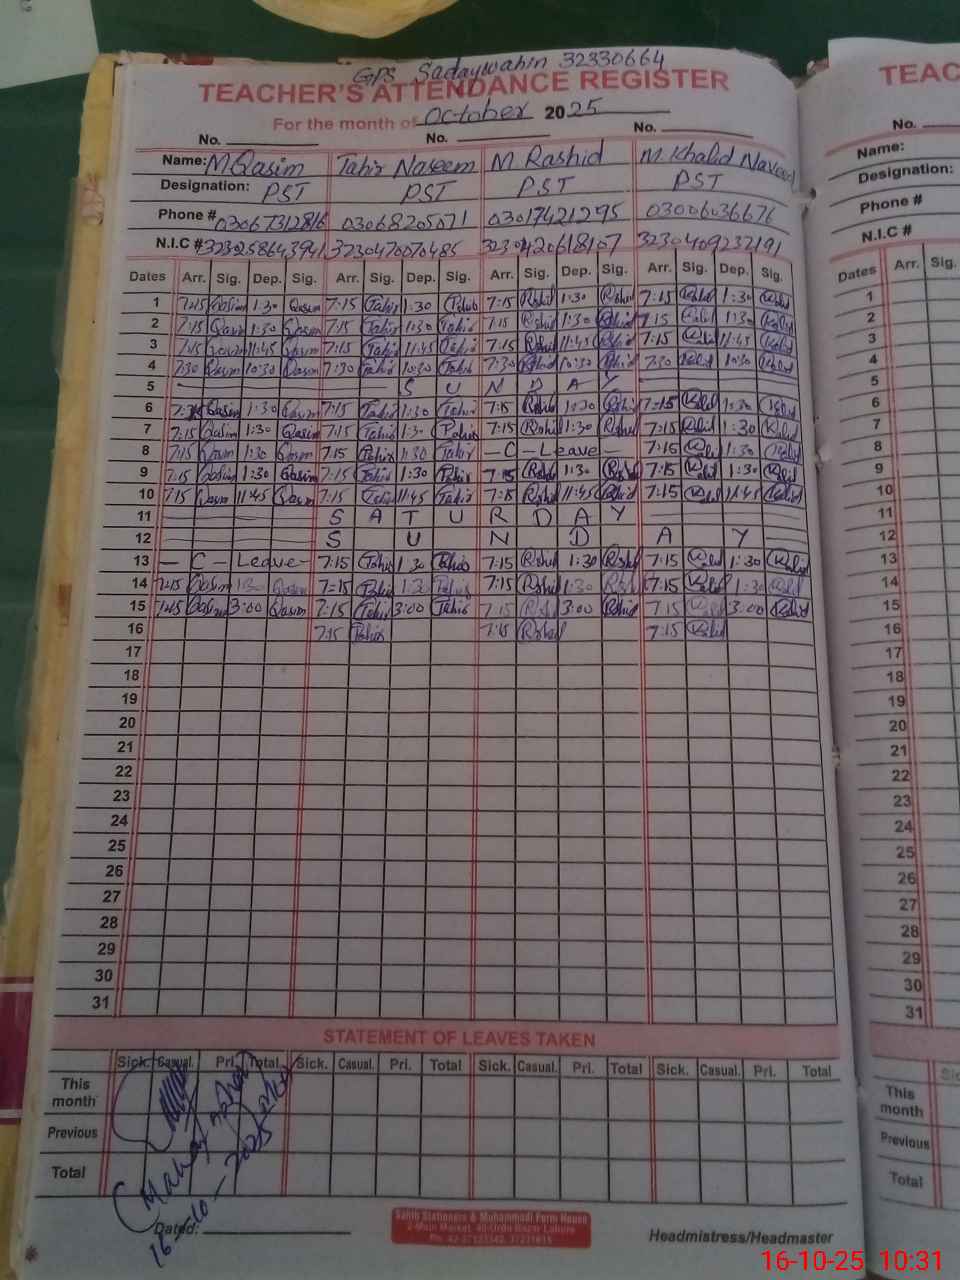 GPS Sadaywahin 32330664
TEACHER'S ATTENDANCE REGISTER
For the month of October 2025
No. No. No.
Name: M Qasim Tahir Naseem M Rashid M. Khalid Naveed
Designation: PST PST PST PST
Phone # 03067312816 03068205071 03017421295 03006036676
N.I.C # 3230470070485 3230409232191
Dates Arr. Sig. Dep. Sig. Arr. Sig. Dep. Sig. Arr. Sig. Dep. Sig. Arr. Sig. Dep. Sig.
1 7:15 Qasim 1:30 Qasim 7:15 Tahir 1:30 Tahir 7:15 Rshid 1:30 Rshid 7:15 Kalid 1:30 Kalid
2 7:15 Qasim 1:30 Qasim 7:15 Tahir 1:30 Tahir 7:15 Rshid 1:30 Rshid 7:15 Kalid 1:30 Kalid
3 7:15 Qasim 11:45 Qasim 7:15 Tahir 11:45 Tahir 7:15 Rshid 11:45 Rshid 7:15 Kalid 11:45 Kalid
4 7:30 Qasim 10:30 Qasim 7:30 Tahir 10:30 Tahir 7:30 Rshid 10:30 Rshid 7:30 Kalid 10:30 Kalid
5 S U N D A Y
6 Qasim 1:30 Qasim 7:15 Tahir 1:30 Tahir 7:15 Rshid 1:30 Rshid 7:15 Kalid 1:30 Kalid
7 7:15 Qasim 1:30 Qasim 7:15 Tahir 1:30 Tahir 7:15 Rshid 1:30 Rshid 7:15 Kalid 1:30 Kalid
8 7:15 Qasim 1:30 Qasim 7:15 Tahir 1:30 Tahir - C - Leave - 7:15 Kalid 1:30 Kalid
9 7:15 Qasim 1:30 Qasim 7:15 Tahir 1:30 Tahir 7:15 Rshid 1:30 Rshid 7:15 Kalid 1:30 Kalid
10 7:15 Qasim 11:45 Qasim 7:15 Tahir 11:45 Tahir 7:15 Rshid 11:45 Rshid 7:15 Kalid 11:45 Kalid
11 S A T U R D A Y
12 S U N D A Y
13 - C - Leave - 7:15 Tahir 1:30 Tahir 7:15 Rshid 1:30 Rshid 7:15 Kalid 1:30 Kalid
14 7:15 Qasim 1:30 Qasim 7:15 Tahir 1:30 Tahir 7:15 Rshid 1:30 Rshid 7:15 Kalid 1:30 Kalid
15 7:15 Qasim 3:00 Qasim 7:15 Tahir 3:00 Tahir 7:15 Rshid 3:00 Rshid 7:15 Kalid 3:00 Kalid
16 7:15 Tahir 7:15 Rshid 7:15 Kalid
17
18
19
20
21
22
23
24
25
26
27
28
29
30
31
STATEMENT OF LEAVES TAKEN
Sick. Casual. Pri. Total Sick. Casual. Pri. Total Sick. Casual. Pri. Total Sick. Casual. Pri. Total
This month
Previous
Total
16-10-2025
Dated:
Sahib Stationers & Muhammadi Form House
2-Main Market, 40-Urdu Bazar Lahore
Headmistress/Headmaster
TEAC
No.
Name:
Designation:
Phone #
N.I.C #
Dates Arr. Sig.
1
2
3
4
5
6
7
8
9
10
11
12
13
14
15
16
17
18
19
20
21
22
23
24
25
26
27
28
29
30
31
This month
Previous
Total
16-10-25 10:31